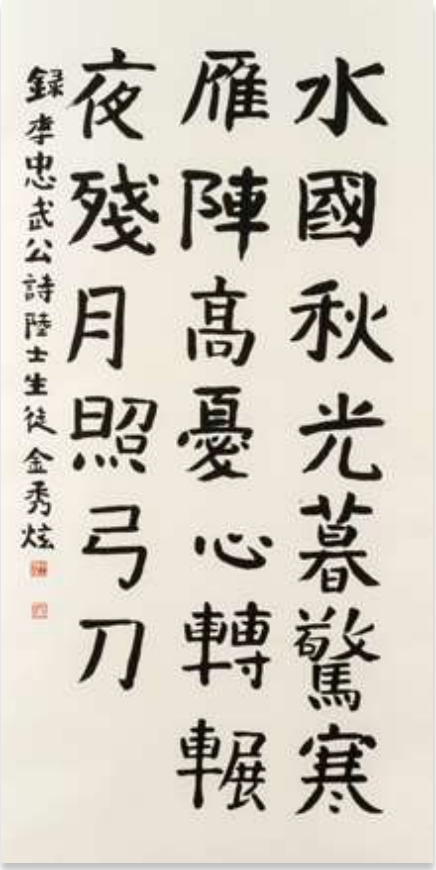 水國秋光暮驚寒
雁陣高憂心轉輾
夜殘月照弓刀
錄李忠武公詩陸士生徒金秀炫